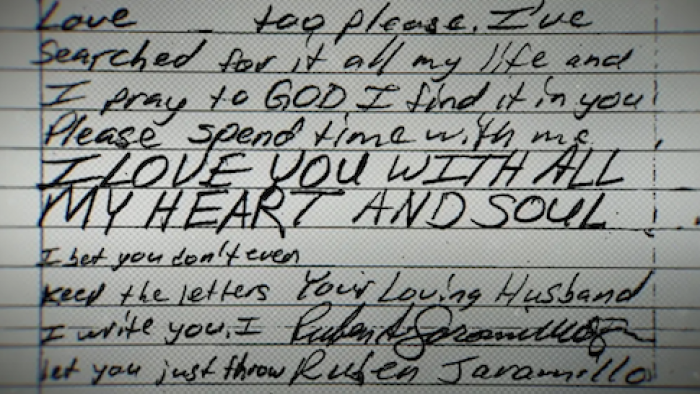 Love too please. I've
Searched for it all my life and
I pray to GOD I find it in you
Please spend time with me
I LOVE YOU WITH ALL
MY HEART AND SOUL
I bet you don't even
keep the letters Your Loving Husband
I write you. I Ruben Jaramillo
bet you just throw Ruben Jaramillo